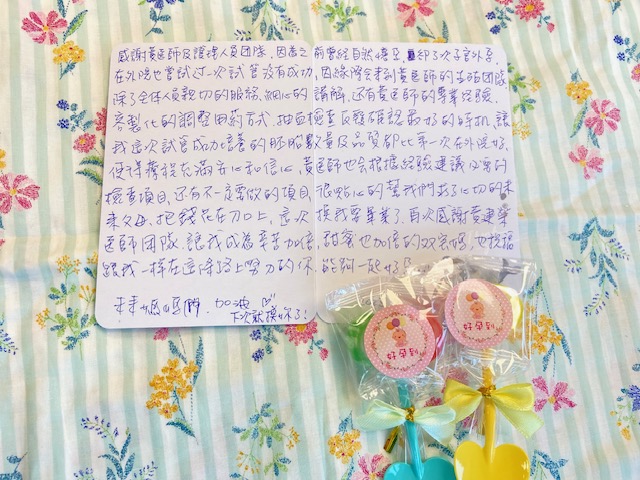 感謝黃醫師及護理人員團隊,因為之前曾經自然懷孕,卻了次子宮外孕
在外院也嘗試過一次試管沒有成功,因緣際會來到黃醫師的生殖團隊
除了全体人員親切的服務、細心的講解,還有黃醫師的專業經驗、
客製化的調整用葯方式,抽血檢查及確認最好的時机,讓
我這次試管成功培養的胚胎數量及品質都比第一次在外院好,
使得療程充滿安心和信心,黃醫師也會根據經驗建議必要的
檢查項目,還有不一定要做的項目,很貼心的幫我們省了心切的未
來父母,把錢花在刀口上,這次換我要畢業了,再次感謝黃建榮
醫師團隊,讓我成為辛苦加倍,甜蜜也加倍的双寶媽,也祝福
跟我一樣在這條路上努力的你,能夠一起好孕
未來媽咪們,加油♡
下次就換妳了!
好孕到
好孕到